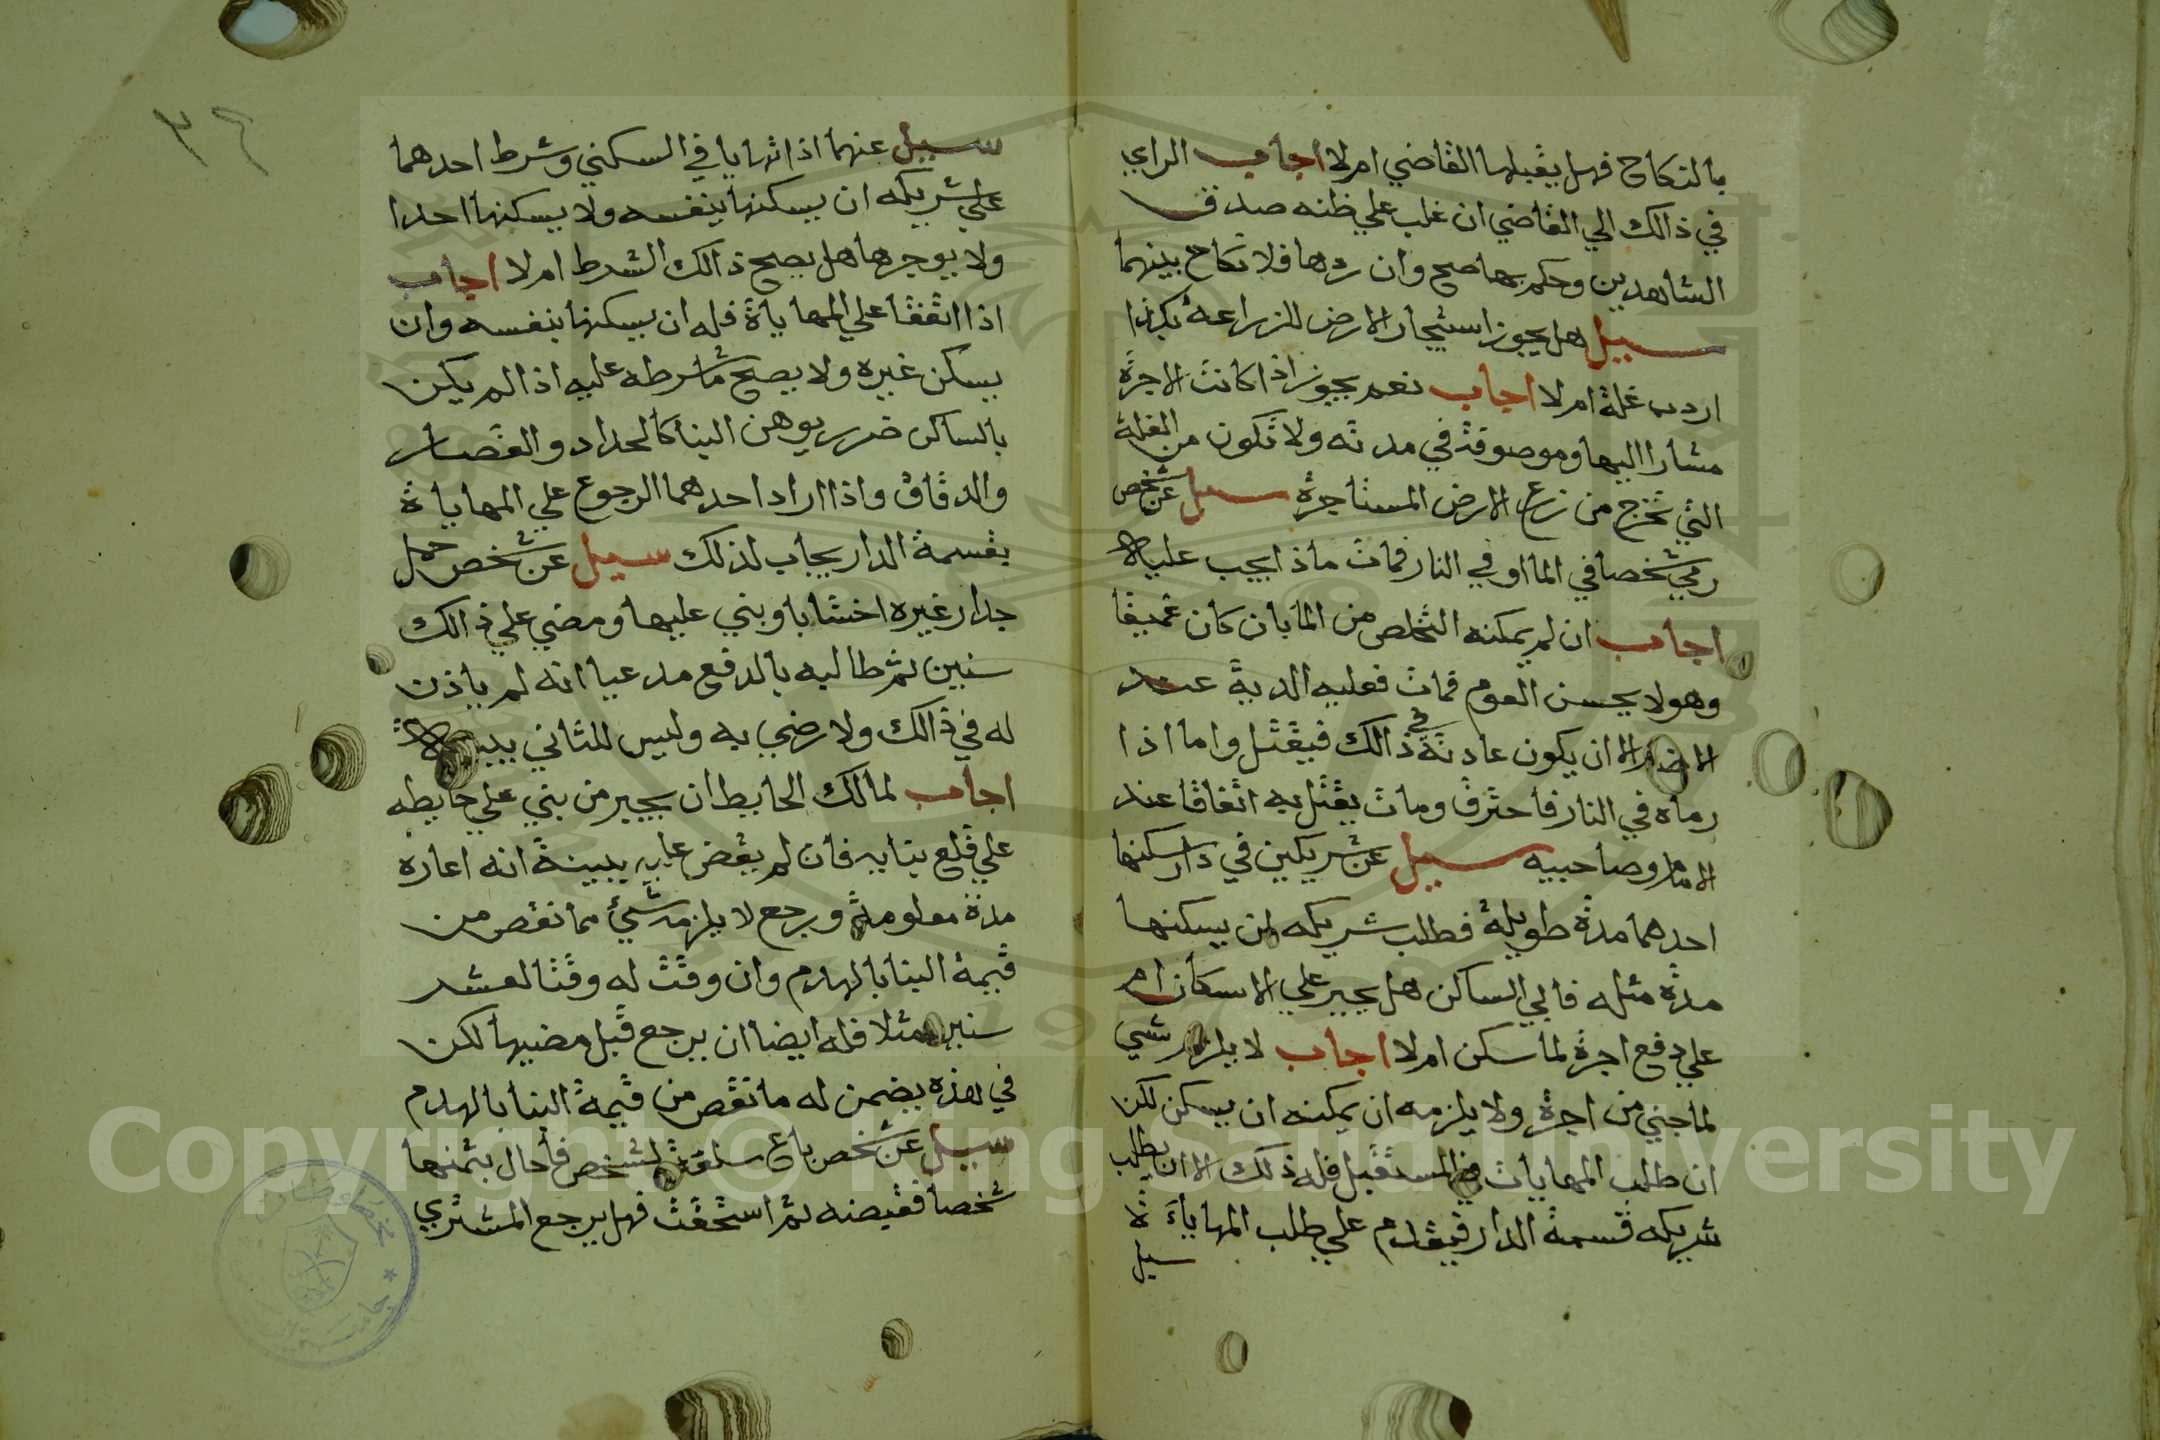 بالنكاح فهل يقبلها القاضي ام لا اجاب الراي
في ذالك الي القاضي ان غلب علي ظنه صدق
الشاهدين وحكم بها صح وان ردها فلا نكاح بينهما
سيل هل يجوز استيجار الارض للزراعة بكذا
اردب غلة ام لا اجاب نعم يجوز اذا كانت الاجرة
مشارا اليها وموصوفة في مدته ولا تكون من الغلة
التي تخرج من زرع الارض المستاجرة سيل عن شخص
رمي شخصا في الما او في النار فمات ماذا يجب عليه
اجاب ان لم يمكنه التخلص من الما بان كان عميقا
وهو لا يحسن العوم فمات فعليه الدية عند
الامام الا ان يكون عادته في ذالك فيقتل واما اذا
رماه في النار فاحترق ومات يقتل به اتفاقا عند
الامام وصاحبيه سيل عن شريكين في دار سكنها
احدهما مدة طويلة فطلب شريكه ان يسكنها
مدة مثله فابي الساكن هل يجبر علي الاسكان ام
علي دفع اجرة لما سكن ام لا اجاب لا يلزم شي
لما جني من اجرة ولا يلزمه ان يمكنه ان يسكن لكن
ان طلب المهايات في المستقبل فله ذلك الا ان يطلب
شريكه قسمة الدار فيقدم علي طلب المهاياة
سيل
٣٤
سيل عنهما اذا تهايا في السكني وشرط احدهما
علي شريكه ان يسكنها بنفسه ولا يسكنها احدا
ولا يوجرها هل يصح ذالك الشرط ام لا اجاب
اذا اتفقا علي المهاياة فله ان يسكنها بنفسه وان
يسكن غيره ولا يصح ما شرطه عليه اذا لم يكن
بالساكن ضرر يوهن البنا كالحداد والقصار
والدقاق واذا اراد احدهما الرجوع علي المهاياة
بقسمة الدار يجاب لذلك سيل عن شخص حمل
جدار غيره اخشابا وبني عليها ومضي علي ذالك
سنين ثم طالبه بالدفع مدعيا انه لم ياذن
له في ذالك ولا رضي به وليس للثاني بينة
اجاب لمالك الحايط ان يجبر من بني علي حايطه
علي قلع بنايه فان لم يقض عليه ببينة انه اعاره
مدة معلومة ورجع لا يلزمه شيئ مما نقص من
قيمة البنا بالهدم وان وقتت له وقتا لعشر
سنين مثلا فله ايضا ان يرجع قبل مضيها لكن
في هذه يضمن له ما نقص من قيمة البنا بالهدم
سيل عن شخص باع سلعة لشخص فاحال بثمنها
شخصا فقبضه ثم استحقت فهل يرجع المشتري
Copyright © King Saud University